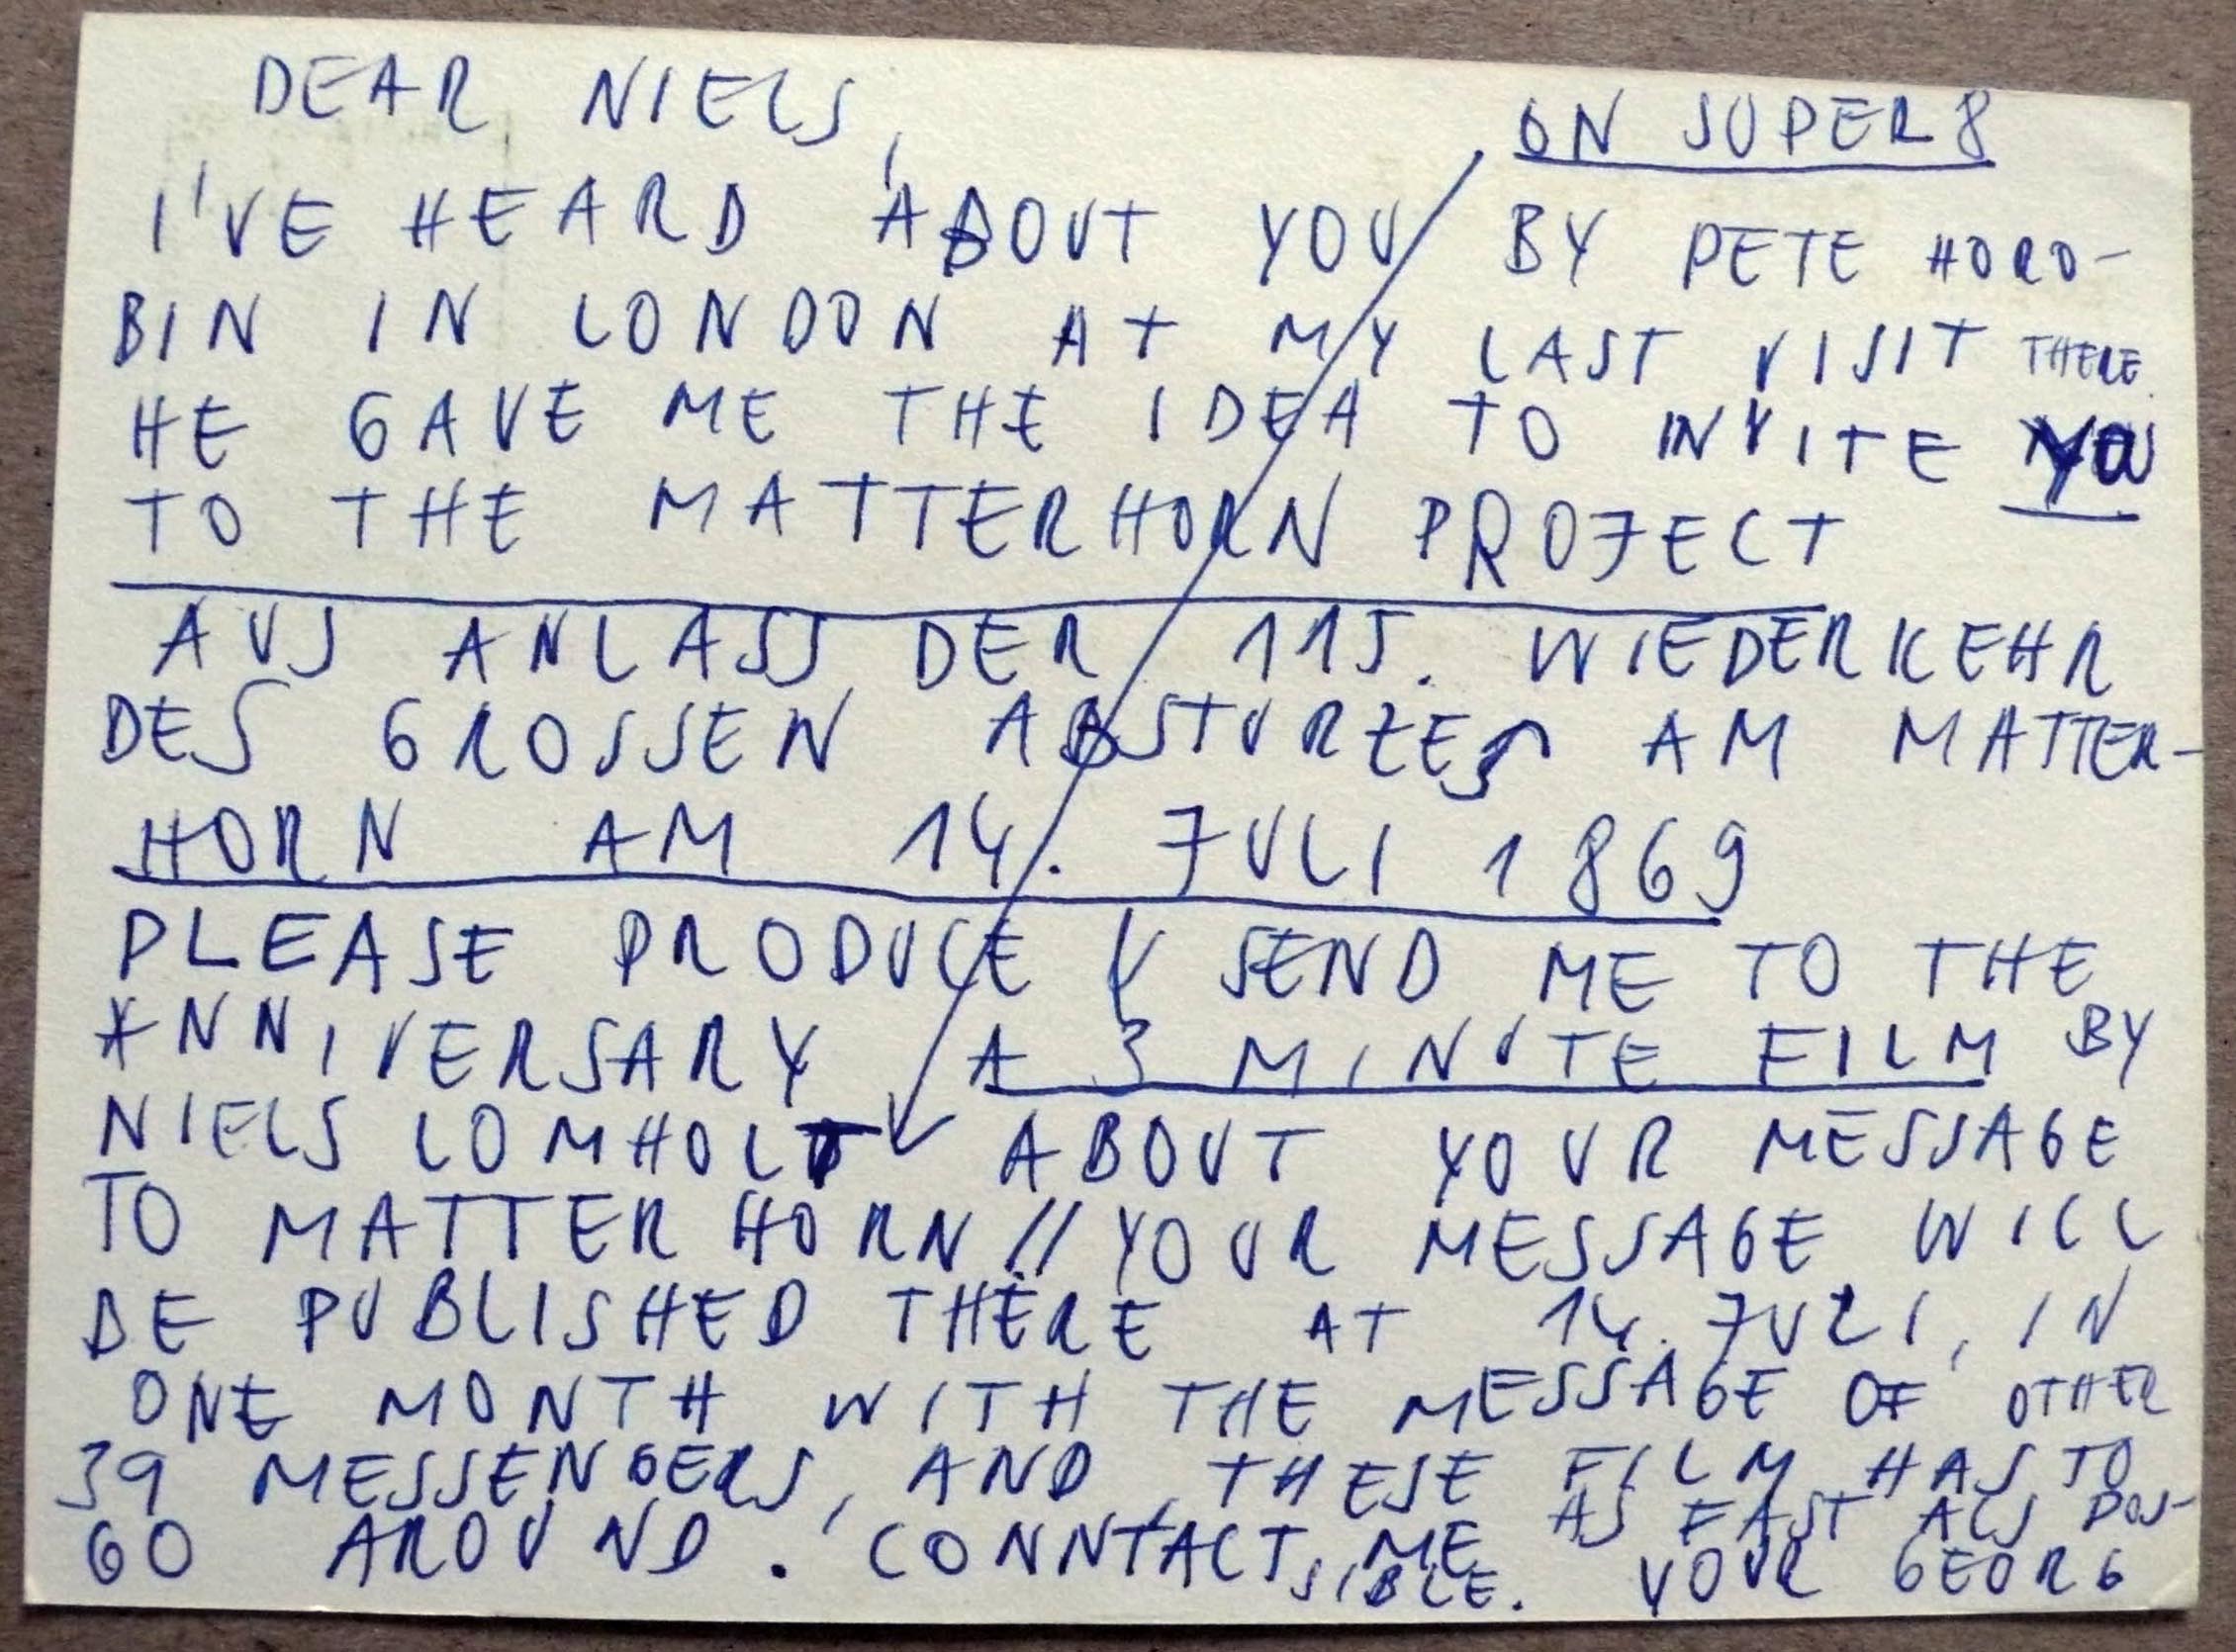 DEAR NIELS,
ON SUPER 8
I'VE HEARD ABOUT YOU BY PETE HORO-
BIN IN LONDON AT MY LAST VISIT THERE.
HE GAVE ME THE IDEA TO INVITE YOU
TO THE MATTERHORN PROJECT
AUS ANLASS DER 115. WIEDERKEHR
DES GROSSEN ABSTURZES AM MATTER-
HORN AM 14. JULI 1869
PLEASE PRODUCE & SEND ME TO THE
ANNIVERSARY A 3 MINUTE FILM BY
NIELS LOMHOLT ABOUT YOUR MESSAGE
TO MATTERHORN // YOUR MESSAGE WILL
BE PUBLISHED THERE AT 14. JULI, IN
ONE MONTH WITH THE MESSAGE OF OTHER
39 MESSENGERS, AND THESE FILM HAS TO
GO AROUND. CONNTACT ME AS FAST ALS POS-
SIBLE. YOUR GEORG